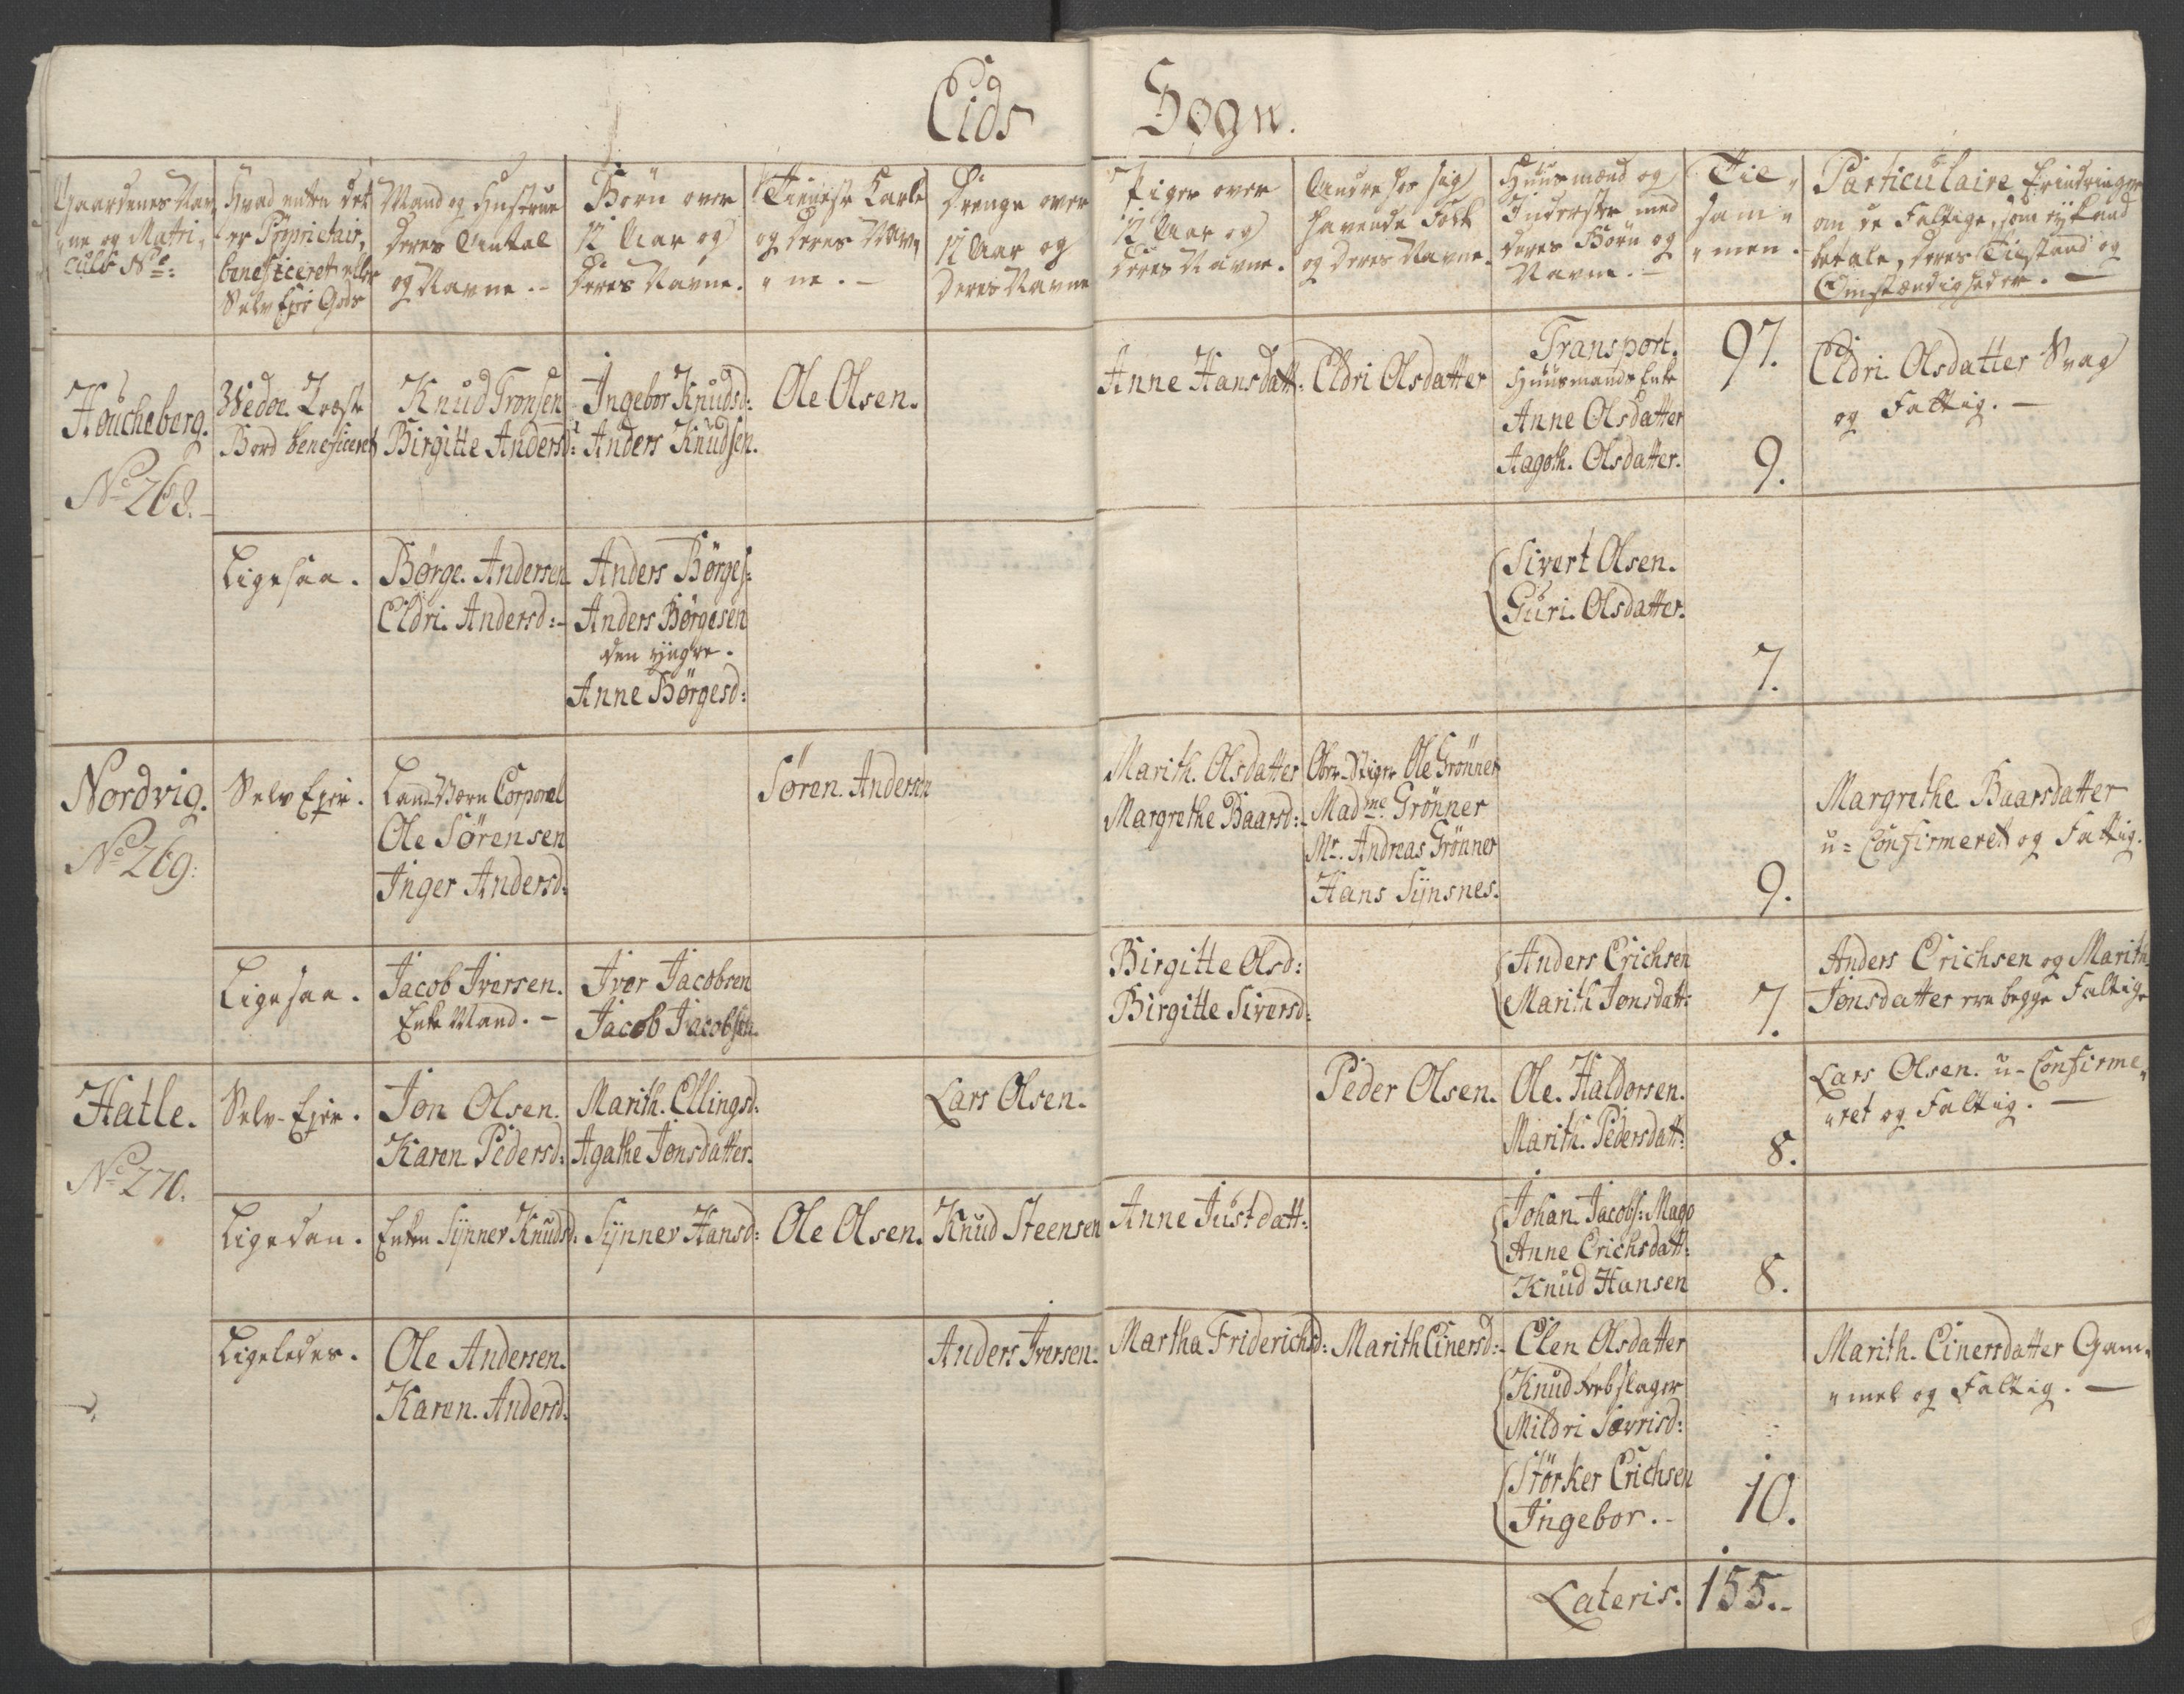 Eids Sogn.
Gaardenes Nav„
„ne og Matri„
culs No:
Hvad enten det
er Proprietair,
beneficeret eller
Selv Ejer Gods
Mand og Hustrue
deres Antal
og Navne. -
Børn over
12 Aar og
Deres Navne.
Tieneste Karle
og deres Nav„
„ne. -
Drenge over
12 Aar og
Deres Navne
Piger over
12 Aar og
deres Navne.
Andre hos sig
havende Folk
og deres Navne.
Huusmænd og
Inderster med
deres Børn og
Navne. -
Til„
sam„
„men.
Particulaire Erindringer
om de Fattige, som ej kand
betale, deres Tilstand og
Omstændigheder. -
Houcheberg.
No 268.
Wedøe Præste
Bord beneficeret
Knud Tronsen
Birgitte Andersd:
Ingebor Knudsd:
Anders Knudsen.
Ole Olsen.
Anne Hansdatt:
Eldri Olsdatter
Transport.
Huusmands Enke
Anne Olsdatter
Aagoth. Olsdatter.
97.
9.
Eldri Olsdatter Svag
og Fattig. -
Ligesaa.
Børge. Andersen
Eldri. Andersd: -
Anders Börges:
Anders Börgesen
den yngre.
Anne Börgesd:
Sivert Olsen.
Guri. Olsdatter.
7.
Nordvig.
No 269:
Selv Ejer.
Land-Værn Corporal
Ole Sörensen
Inger Andersd:
Sören. Andersen
Marith. Olsdatter
Margrethe Baarsd: -
Ober-Stiger Ole Grönner
Madme. Grönner
Mr. Andreas Grönner
Hans Synsnes.
9.
Margrethe Baarsdatter
u= Confirmeret og Fattig.
Ligesaa.
Jacob Iversen.
Enke Mand. -
Iver Jacobsen
Jacob Jacobsen.
Birgitte Olsd:
Birgitte Siversd:
Anders Erichsen
Marith Jonsdatt:
7.
Anders Erichsen og Marith
Jonsdatter ere begge Fattige
Hatle.
No 270.
Selv-Ejer.
Jon Olsen.
Karen Pedersd:
Marith. Ellingsd:
Agathe Jonsdatter.
Lars Olsen.
Peder Olsen.
Ole. Haldorsen.
Marith. Pedersdatt:
8.
Lars Olsen. u-Confirme„
„ret og Fattig. -
Ligedan.
Enken Synner Knudsd:
Synner Hansd:
Ole Olsen.
Knud Steensen
Anne Justdatt:
Johan. Jacobs: Mago
Anne Erichsdatt:
Knud Hansen
8.
Ligeledes.
Ole Andersen.
Karen. Andersd:
Anders Iversen.
Martha Friderichsd:
Marith Einersd: -
Elen Olsdatter
Knud Rebslager
Mildri Sævrisd:
Störker Erichsen
Ingebor. -
10.
Marith. Einersdatter Gam„
„mel og Fattig. -
Lateris. 155. -